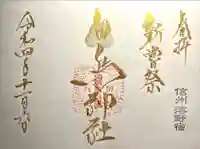 奉拝
新嘗祭
信州海野宿
白鳥神社
令和四年十一月